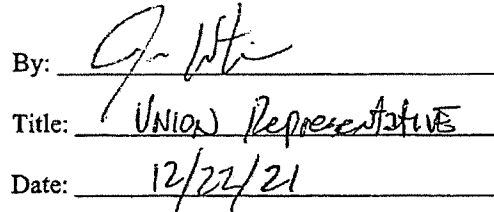 By:
Title: UNION Representative
Date: 12/22/21